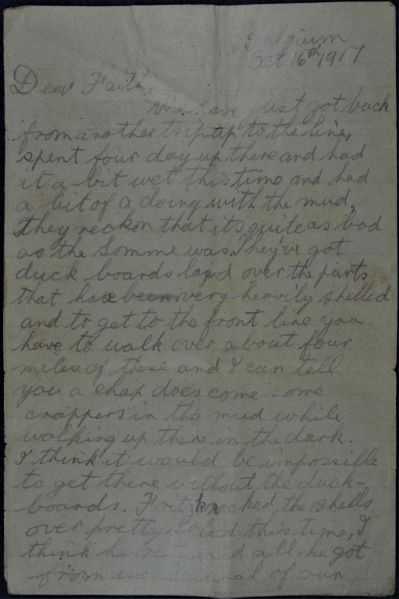 Belgium
Oct 16th 1917
Dear Faith
We have just got back
from another trip up to the line,
spent four day up there and had
it a bit wet this time and had
a bit of a doing with the mud,
they reckon that its quite as bad
as the Somme was. They've got
duck boards layd over the parts
that has been very heavily shelled
and to get to the front line you
have to walk over about four
miles of these and I can tell
you a chap does come some
crappers in the mud while
walking up there in the dark.
I think it would be impossible
to get there without the duck-
boards. Fritz knocked the shells
over pretty this time, I
think he all he got
from of our